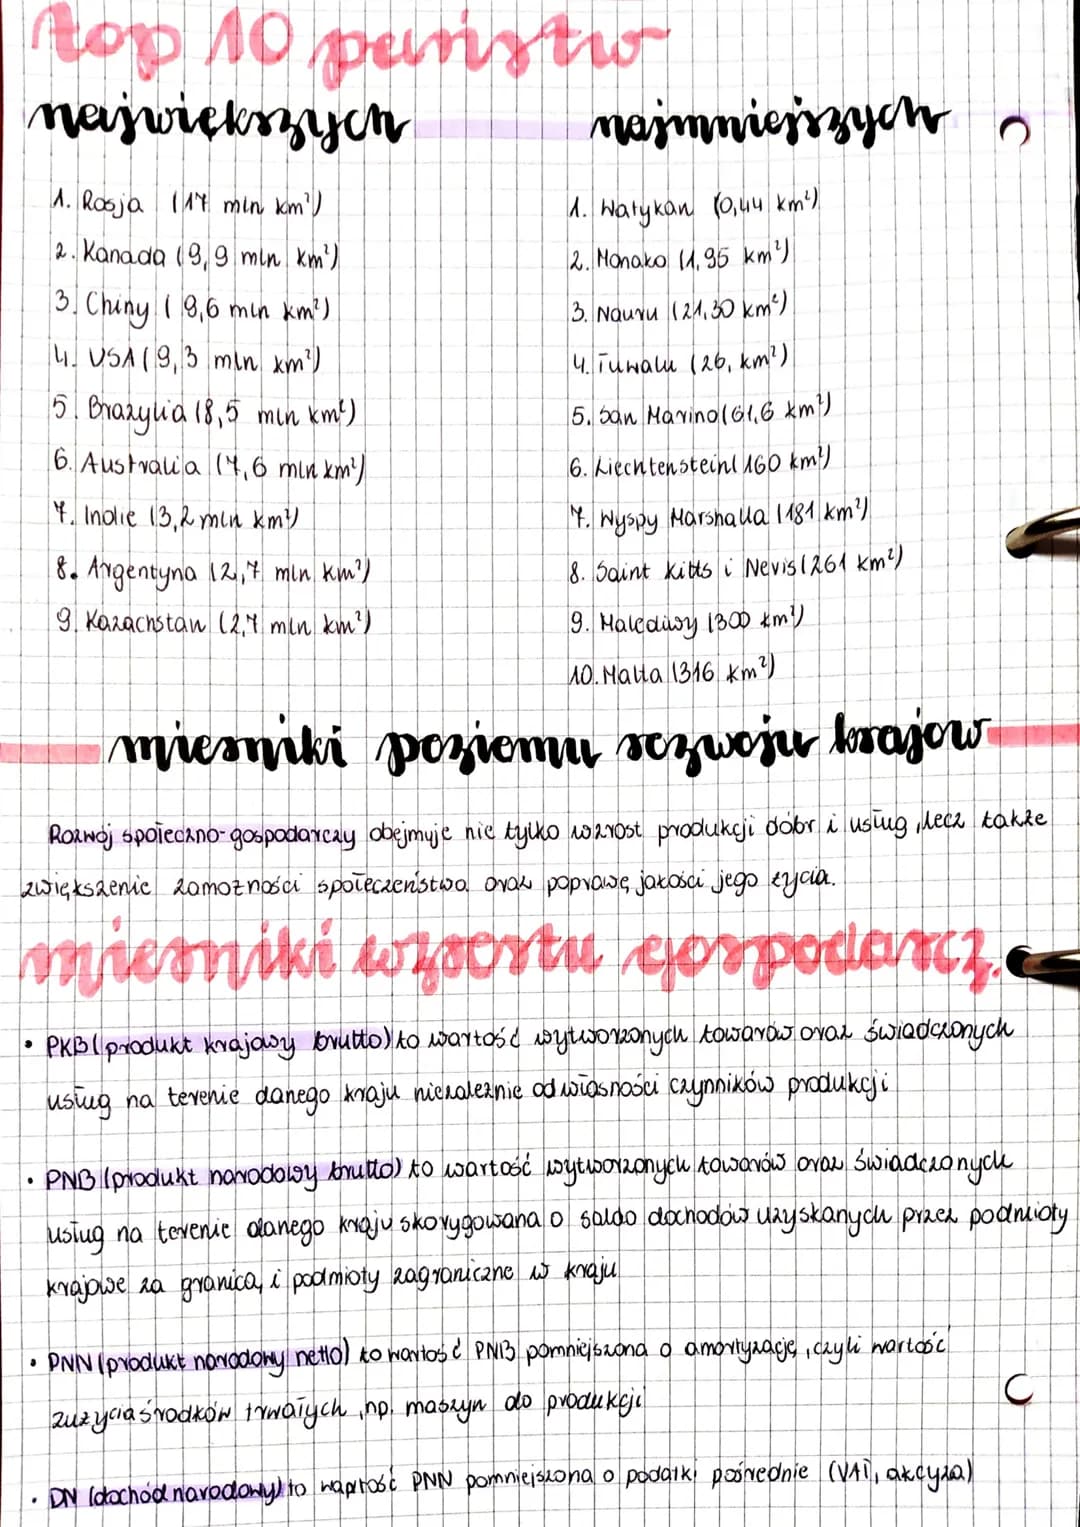 top 10 państw
największych
najmniejszych
1. Rosja (17 mln km²)
2. Kanada (9,9 mln km²)
3. Chiny (9,6 mln km²)
4. USA (9,3 mln km²)
5. Brazylia (8,5 mln km²)
6. Australia (7,6 mln km²)
7. Indie (3,2 mln km²)
8. Argentyna (2,7 mln km²)
9. Kazachstan (2,7 mln km²)
1. Watykan (0,44 km²)
2. Monako (1,95 km²)
3. Nauru (21,30 km²)
4. Tuwalu (26, km²)
5. San Marino (61,6 km²)
6. Liechtenstein (160 km²)
7. Wyspy Marshalla (181 km²)
8. Saint Kitts i Nevis (261 km²)
9. Malediwy (300 km²)
10. Malta (316 km²)
mierniki poziomu rozwoju krajow
Rozwój społeczno-gospodarczy obejmuje nie tylko wzrost produkcji dóbr i usług, lecz także
zwiększenie zamożności społeczeństwa oraz poprawę jakości jego życia.
mierniki wzrostu gospodarcz.
• PKB (produkt krajowy brutto) to wartość wytworzonych towarów oraz świadczonych
usług na terenie danego kraju niezależnie od własności czynników produkcji
• PNB (produkt narodowy brutto) to wartość wytworzonych towarów oraz świadczonych
usług na terenie danego kraju skorygowana o saldo dochodów uzyskanych przez podmioty
krajowe za granicą i podmioty zagraniczne w kraju
• PNN (produkt narodowy netto) to wartość PNB pomniejszona o amortyzację, czyli wartość
zużycia środków trwałych, np. maszyn do produkcji
• DN (dochód narodowy) to wartość PNN pomniejszona o podatki pośrednie (VAT, akcyza)